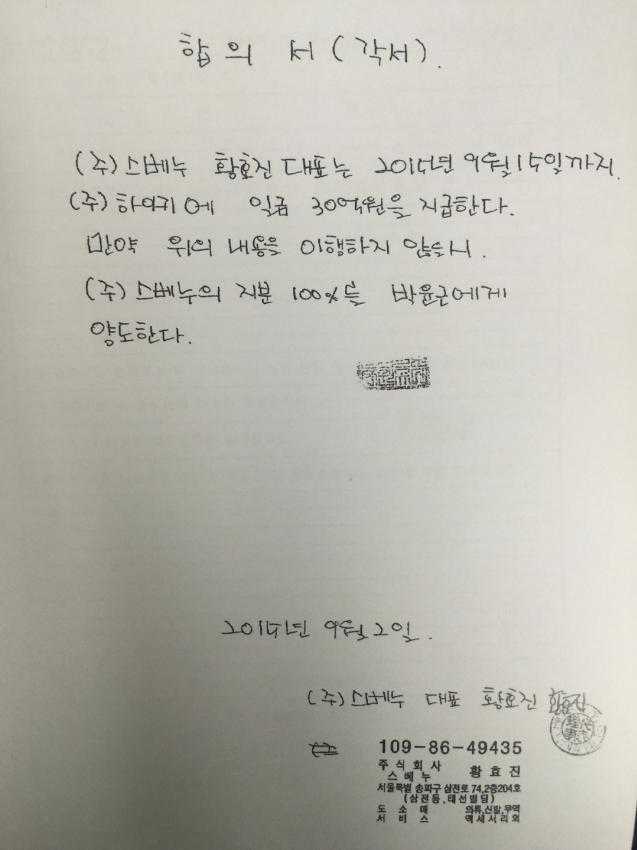 합의서(각서).
(주)스베누 황효진 대표는 2015년 9월15일까지
(주)하여기에 일금 30억원을 지급한다.
만약 위의 내용을 이행하지 않을시.
(주)스베누의 지분 100%를 박윤근에게
양도한다.
2015년 9월 2일.
(주)스베누 대표 황효진 황효진
109-86-49435
주식회사
스베누 황효진
서울특별 송파구 삼전로 74,2층204호
(삼전동,태선빌딩)
도소매 의류,신발,무역
서비스 액세서리외